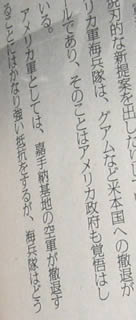 対的な新提案を出したいし
リカ軍海兵隊は、グアムなど米本国への撤退が
ールであり、そのことはアメリカ政府も覚悟はし
いる。
アメリカ軍としては、嘉手納基地の空軍が撤退す
ることにはかなり強い抵抗をするが、海兵隊はどう